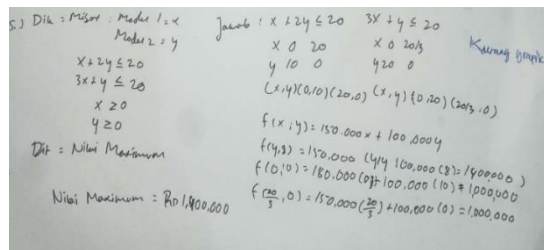 5.) Dik = Misal : Model 1 = x
Model 2 = y
x + 2y ≤ 20
3x + y ≤ 20
x ≥ 0
y ≥ 0
Dit = Nilai Maximum
Nilai Maximum = Rp 1,400.000
Jawab : x + 2y ≤ 20 3x + y ≤ 20
x 0 20 x 0 20/3
y 10 0 y 20 0
(x,y)(0,10)(20,0) (x,y)(0,20)(20/3,0)
f(x,y) = 150.000x + 100,000y
f(4,8) = 150,000 (4) + 100,000 (8) = 1,400,000
f(0,10) = 150.000 (0) + 100.000 (10) = 1,000,000
f(20/3, 0) = 150,000 (20/3) + 100,000 (0) = 1,000,000
Kurang grapik